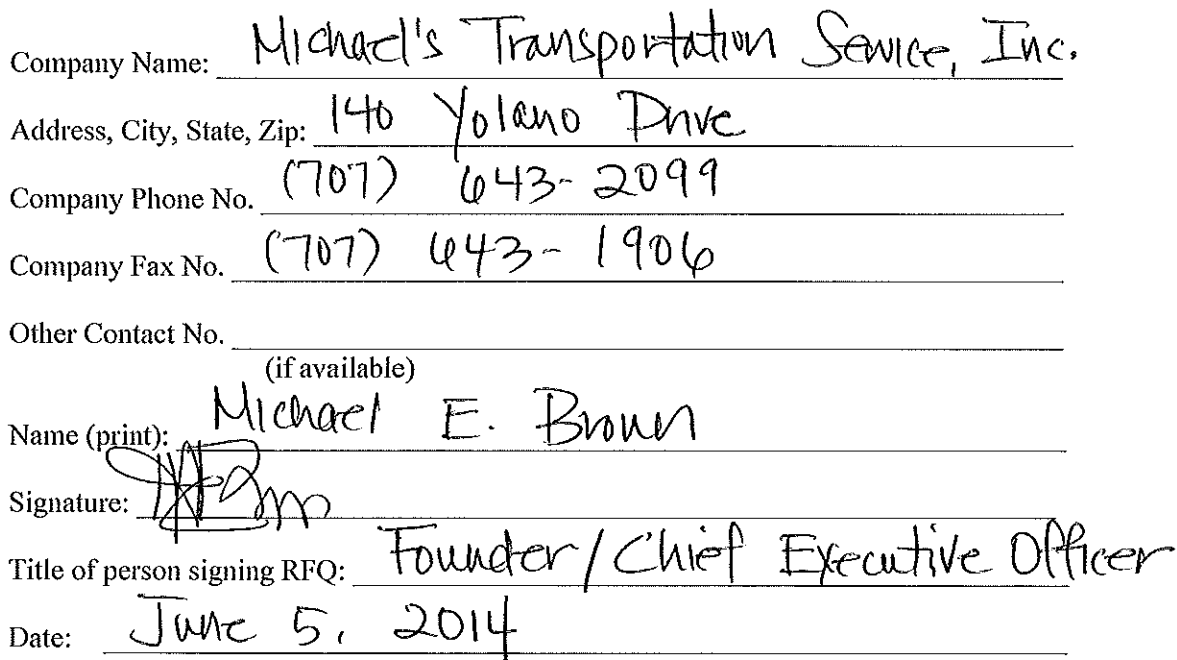 Company Name: Michael's Transportation Service, Inc.
Address, City, State, Zip: 140 Yolano Drive
Company Phone No. (707) 643-2099
Company Fax No. (707) 643-1906
Other Contact No.
(if available)
Name (print): Michael E. Brown
Signature:
Title of person signing RFQ: Founder/Chief Executive Officer
Date: June 5, 2014